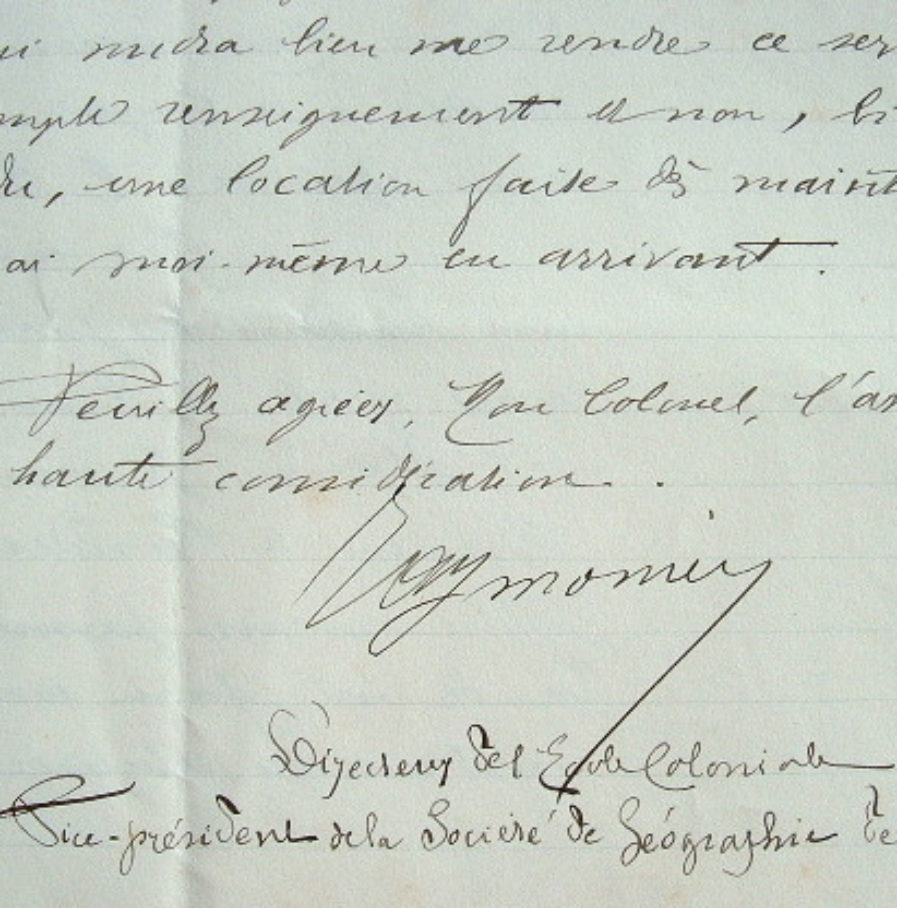 voudra bien me rendre ce ser
renseignement et non, bi
du, une location faite dès maint
ai moi-même en arrivant.
Veuillez agréer, Mon Colonel, l'as
haute considération.
Aymonier
Directeur de l'École Coloniale
Vice-président de la Société de Géographie de